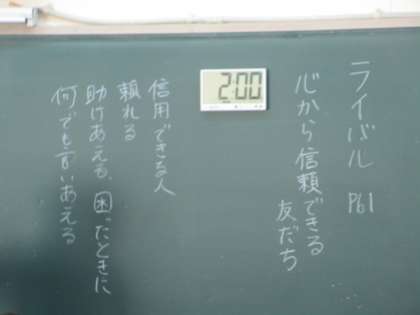 ライバル P61
心から信頼できる
友だち
2:00
信用できる人
頼れる
助けあえる、困ったときに
何でも言いあえる